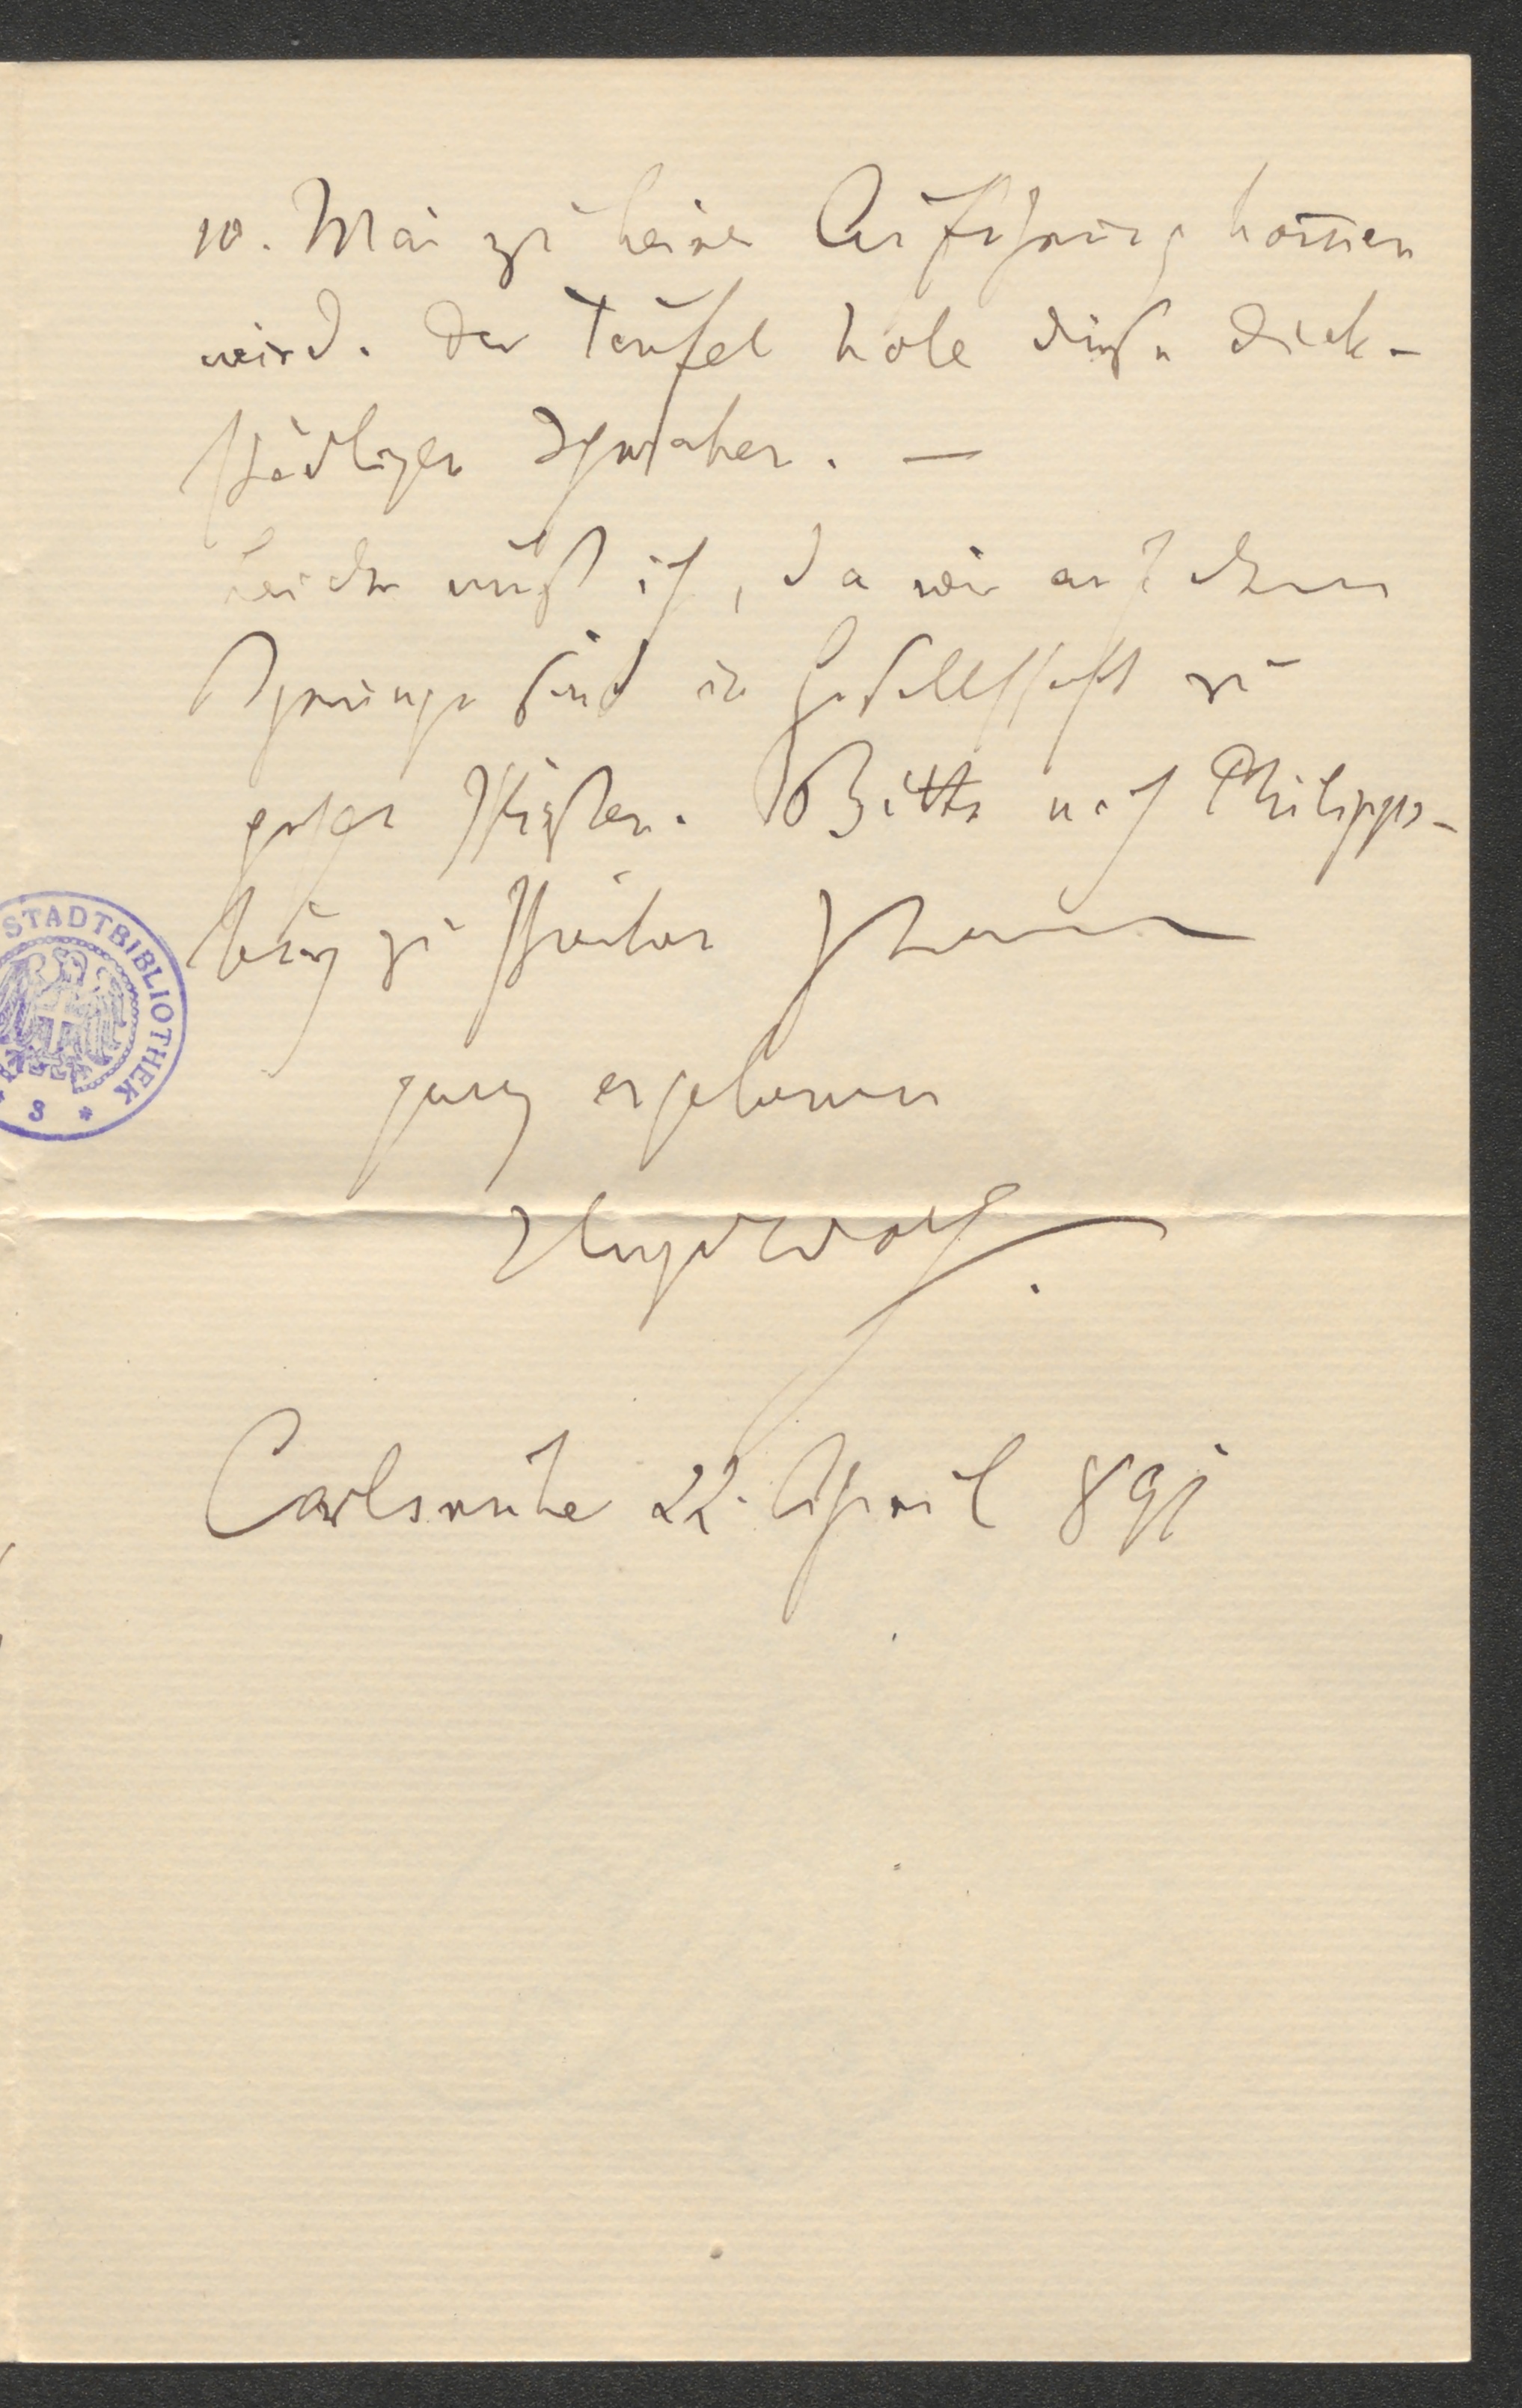 10. Mai zu keiner Aufführung kom̄en
wird. Der Teufel hole diese dick-
schädligen Schwaben. —
Leider muß ich, da wir auf dem
Sprunge sind in Gesellschaft zu
gehen schließen. Bitte nach Philipps-
burg zu schreiben Ihrem
ganz ergebenen
Hugo Wolf.
Carlsruhe 22. April 891
STADTBIBLIOTHEK